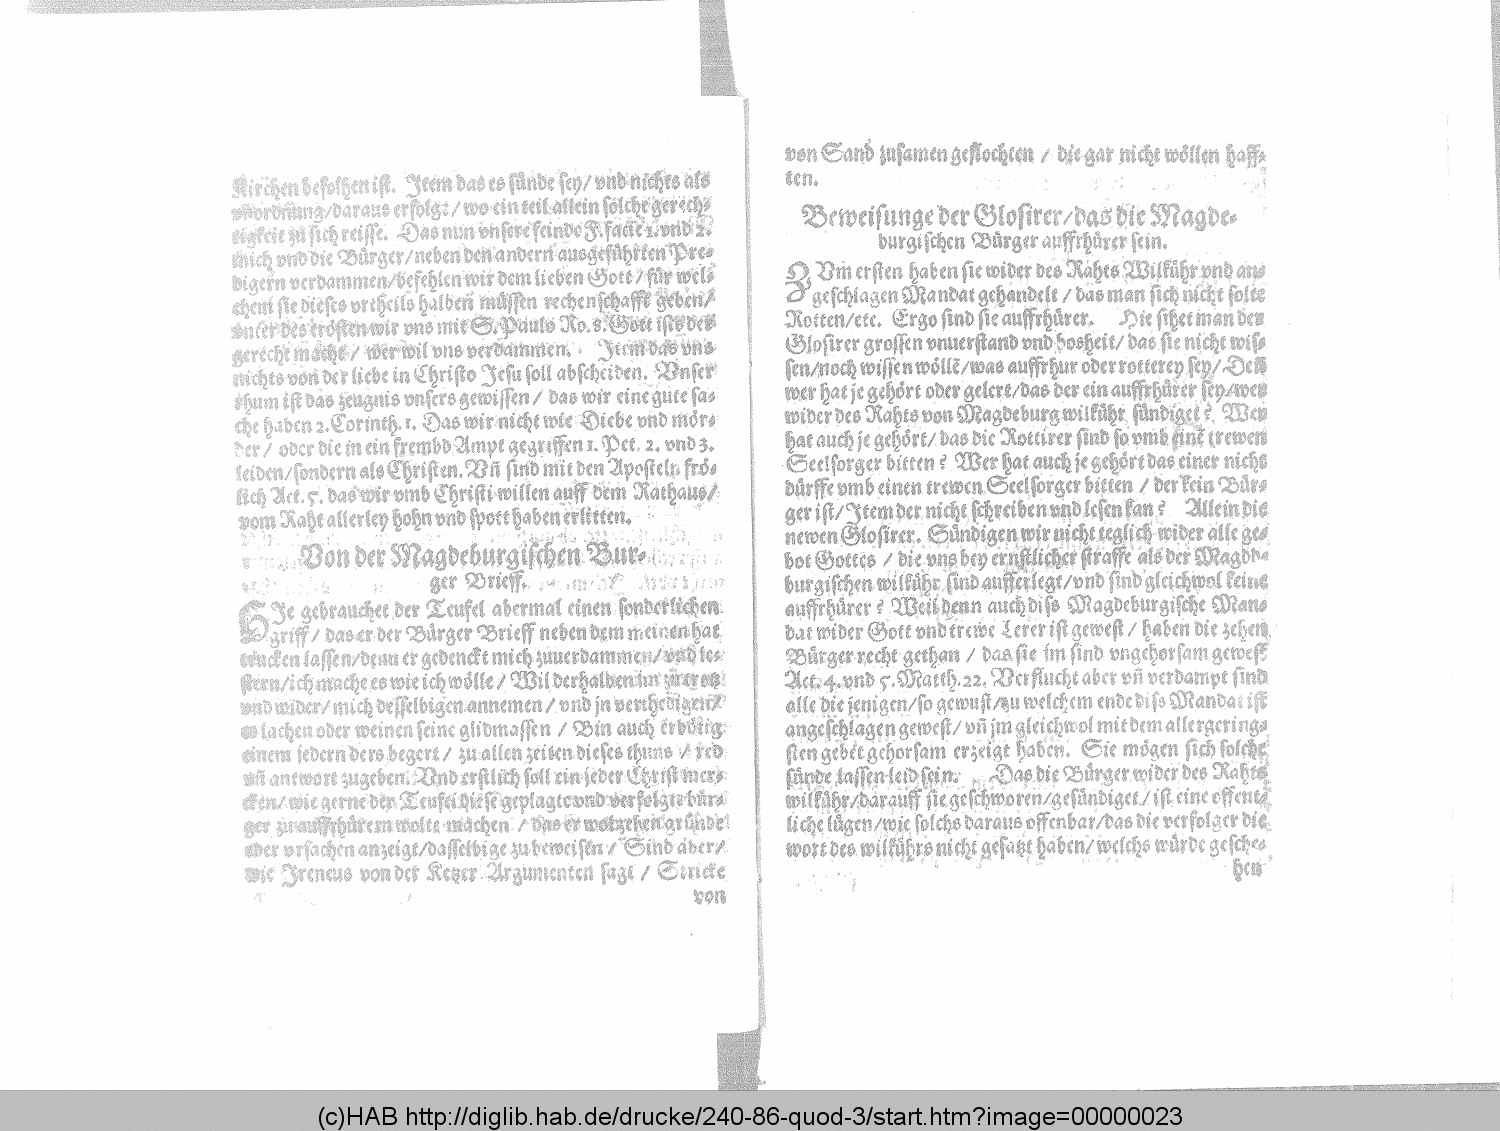 Kirchen befolhen ist. Item das es sünde sey/ vnd nichts als
vnordnung/daraus erfolge/ wo ein teil allein solche gerech⸗
tigkeit zu sich reisse. Das nun vnsere feinde F. facie 1. vnd 2.
mich vnd die Bürger/neben den andern ausgeführten Pre⸗
digern verdammen/befehlen wir dem lieben Gott/ für wel⸗
chem sie dieses vrtheils halben müssen rechenschafft geben/
vnter des trösten wir vns mit S. Paulo Ro. 8. Gott ists der
gerecht macht/ wer wil vns verdammen. Item das vns
nichts von der liebe in Christo Jesu soll abscheiden. Vnser
rhum ist das zeugnis vnsers gewissen/ das wir eine gute sa⸗
che haben 2. Corinth. 1. Das wir nicht wie Diebe vnd mör⸗
der/ oder die in ein frembd Ampt gegriffen 1. Pet. 2. vnd 3.
leiden/sondern als Christen. Vñ sind mit den Aposteln frö⸗
lich Act. 5. das wir vmb Christi willen auff dem Rathaus/
vom Raht allerley hohn vnd spott haben erlitten.
Von der Magdeburgischen Bur⸗
ger Brieff.
HIe gebrauchet der Teufel abermal einen sonderlichen
griff/ das er der Bürger Brieff neben dem meinen hat
trucken lassen/denn er gedenckt mich zuuerdammen/vnd les⸗
stern/ich mache es wie ich wölle/ Wil derhalben im zu trotz
vnd wider/ mich desselbigen annemen/ vnd jn verthedigen/
es lachen oder weinen seine glidmassen/ Bin auch erbötig
einem jedern ders begert/ zu allen zeiten dieses thuns/ red
vñ antwort zugeben. Vnd erstlich soll ein jeder Christ mer⸗
cken/ wie gerne der Teufel diese geplagte vnd verfolgte bür⸗
ger zu auffrhürern wolte machen/ das er wol zehen gründe
oder vrsachen anzeigt/dasselbige zu beweisen/ Sind aber/
wie Jreneus von der Ketzer Argumenten sagt/ Stricke
von
von Sand zusamen geflochten/ die gar nicht wöllen haff⸗
ten.
Beweisunge der Glosirer/das die Magde⸗
burgischen Bürger auffrhürer sein.
ZVm ersten haben sie wider des Rahts Wilkühr vnd an⸗
geschlagen Mandat gehandelt/ das man sich nicht solte
Rotten/etc. Ergo sind sie auffrhürer. Hie sihet man der
Glosirer grossen vnuerstand vnd bosheit/ das sie nicht wis⸗
sen/noch wissen wöllē/was auffrhur oder rotterey sey/Denn
wer hat je gehört oder gelert/das der ein auffrhürer sey/wer
wider des Rahts von Magdeburg wilkühr sündiget? Wer
hat auch je gehört/ das die Rottirer sind so vmb einē trewen
Seelsorger bitten? Wer hat auch je gehört das einer nicht
dürffe vmb einen trewen Seelsorger bitten/ der kein Bür⸗
ger ist/Item der nicht schreiben vnd lesen kan? Allein die
newen Glosirer. Sündigen wir nicht teglich wider alle ge⸗
bot Gottes/ die vns bey ernstlicher straffe als der Magde⸗
burgischen wilkühr sind aufferlegt/vnd sind gleichwol keine
auffrhürer? Weil denn auch diss Magdeburgische Man⸗
dat wider Gott vnd trewe Lerer ist gewest/ haben die zehen
Bürger recht gethan/ das sie im sind vngehorsam gewest
Act. 4. vnd 5. Matth. 22. Verflucht aber vñ verdampt sind
alle die jenigen/so gewust/zu welchem ende diss Mandat ist
angeschlagen gewest/ vñ jm gleichwol mit dem allergering⸗
sten gebet gehorsam erzeigt haben. Sie mögen sich solche
sünde lassen leid sein. Das die Bürger wider des Rahts
wilkühr/darauff sie geschworen/gesündiget/ ist eine offent⸗
liche lügen/wie solchs daraus offenbar/das die verfolger die
wort des wilkührs nicht gesatzt haben/welchs würde gesche⸗
hen
(c)HAB http://diglib.hab.de/drucke/240-86-quod-3/start.htm?image=00000023